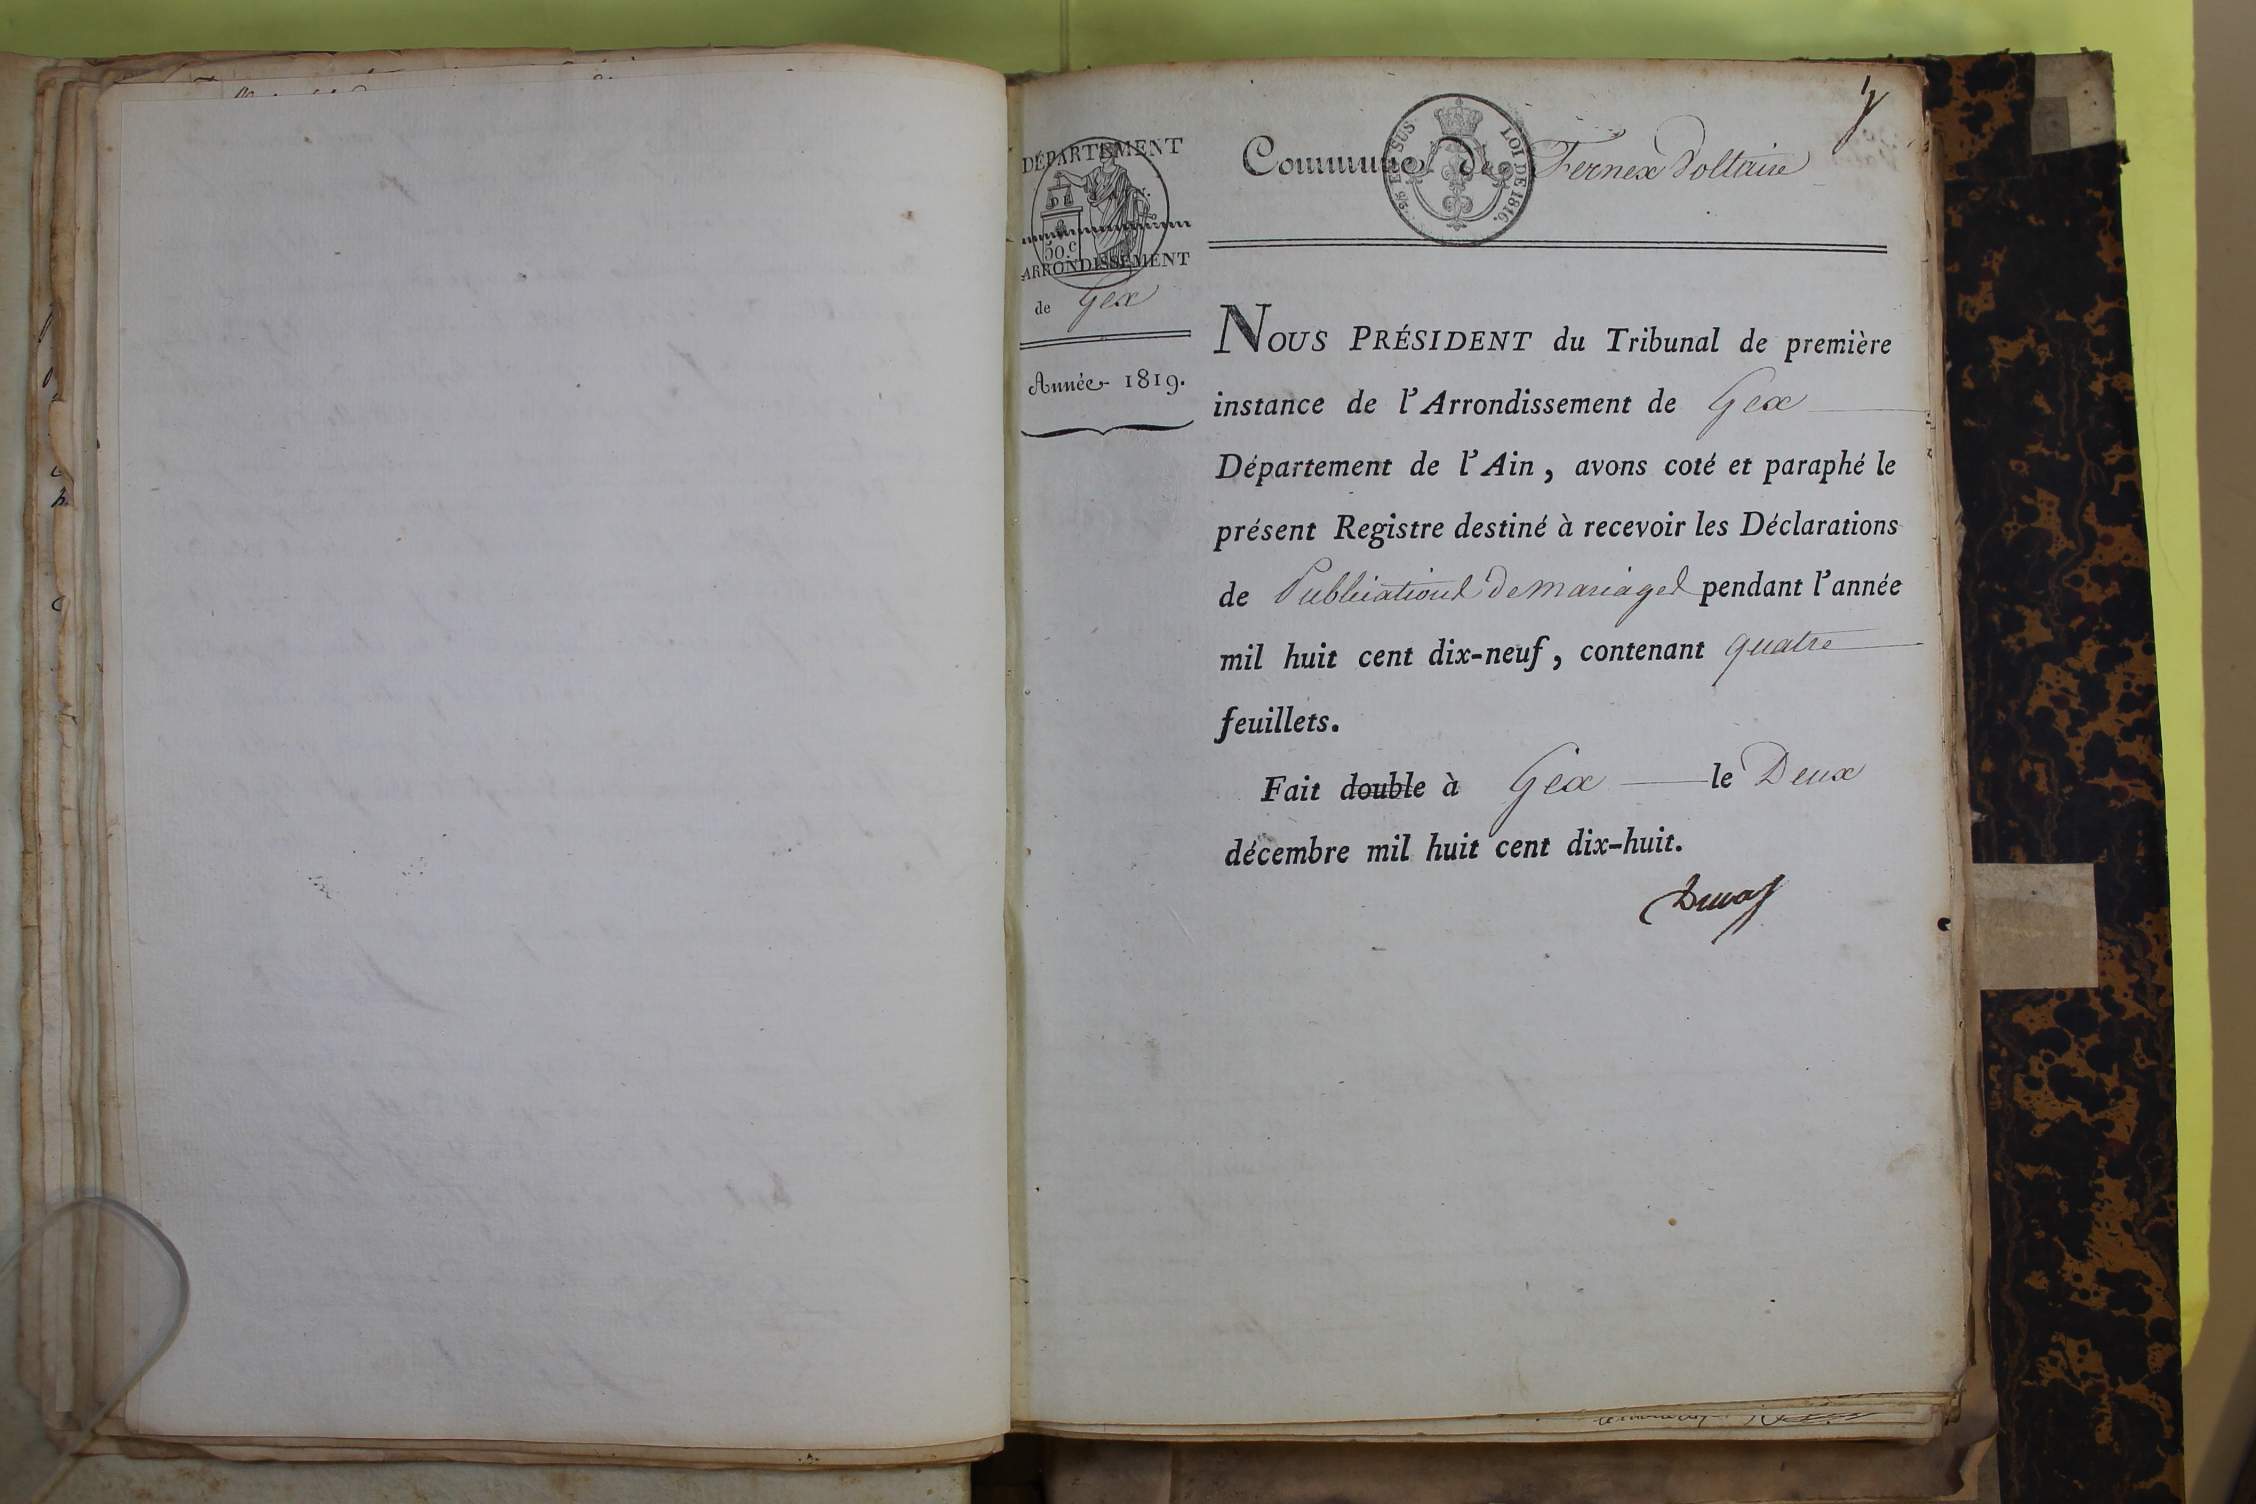 DÉPARTEMENT
DE
50.c
ARRONDISSEMENT
de Gex
Année 1819.
25 EN SUS
LOI DE 1816.
Commune de Fernex Voltaire
NOUS PRÉSIDENT du Tribunal de première
instance de l'Arrondissement de Gex
Département de l'Ain, avons coté et paraphé le
présent Registre destiné à recevoir les Déclarations
de Publications de mariages pendant l'année
mil huit cent dix-neuf, contenant quatre
feuillets.
Fait double à Gex le Deux
décembre mil huit cent dix-huit.